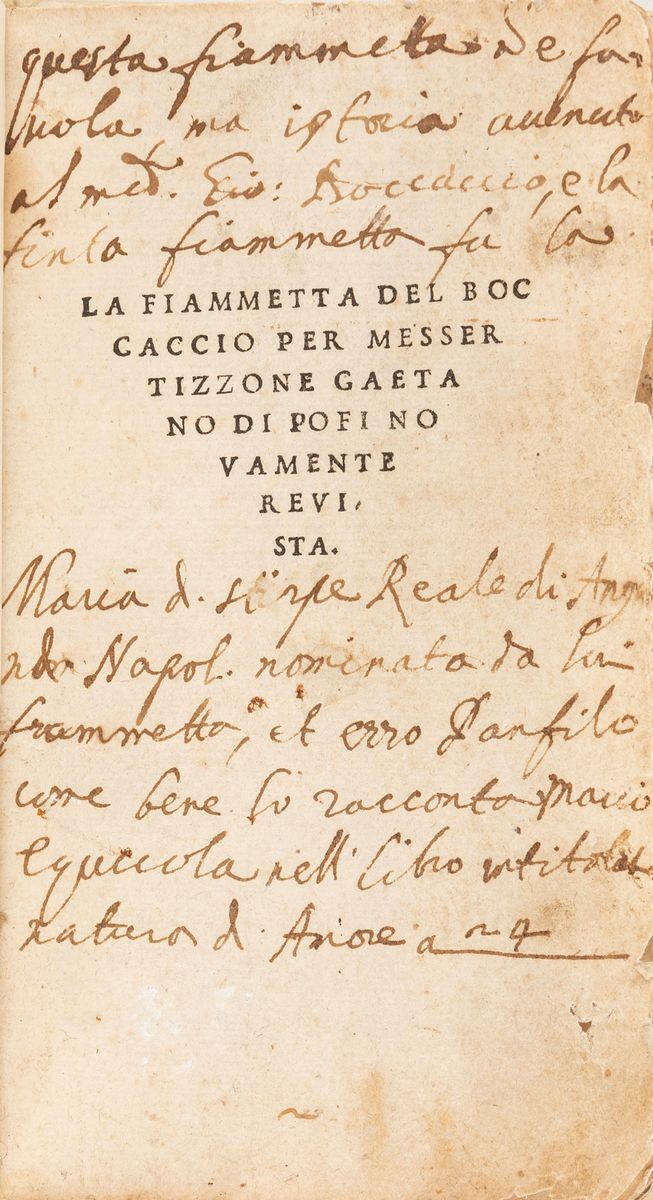 questa fiammetta nõ e fa-
uola, ma istoria auenuta
al med. Gio: Boccaccio, e la
finta fiammetta fu la
LA FIAMMETTA DEL BOC
CACCIO PER MESSER
TIZZONE GAETA
NO DI POFI NO
VAMENTE
REVI,
STA.
Maria d. stirpe Reale di
Napol. nominata da lui
fiammetta, et esso Panfilo
come bene lo racconta Mario
Equicola nell' libro intitolat
natura d. Amore a